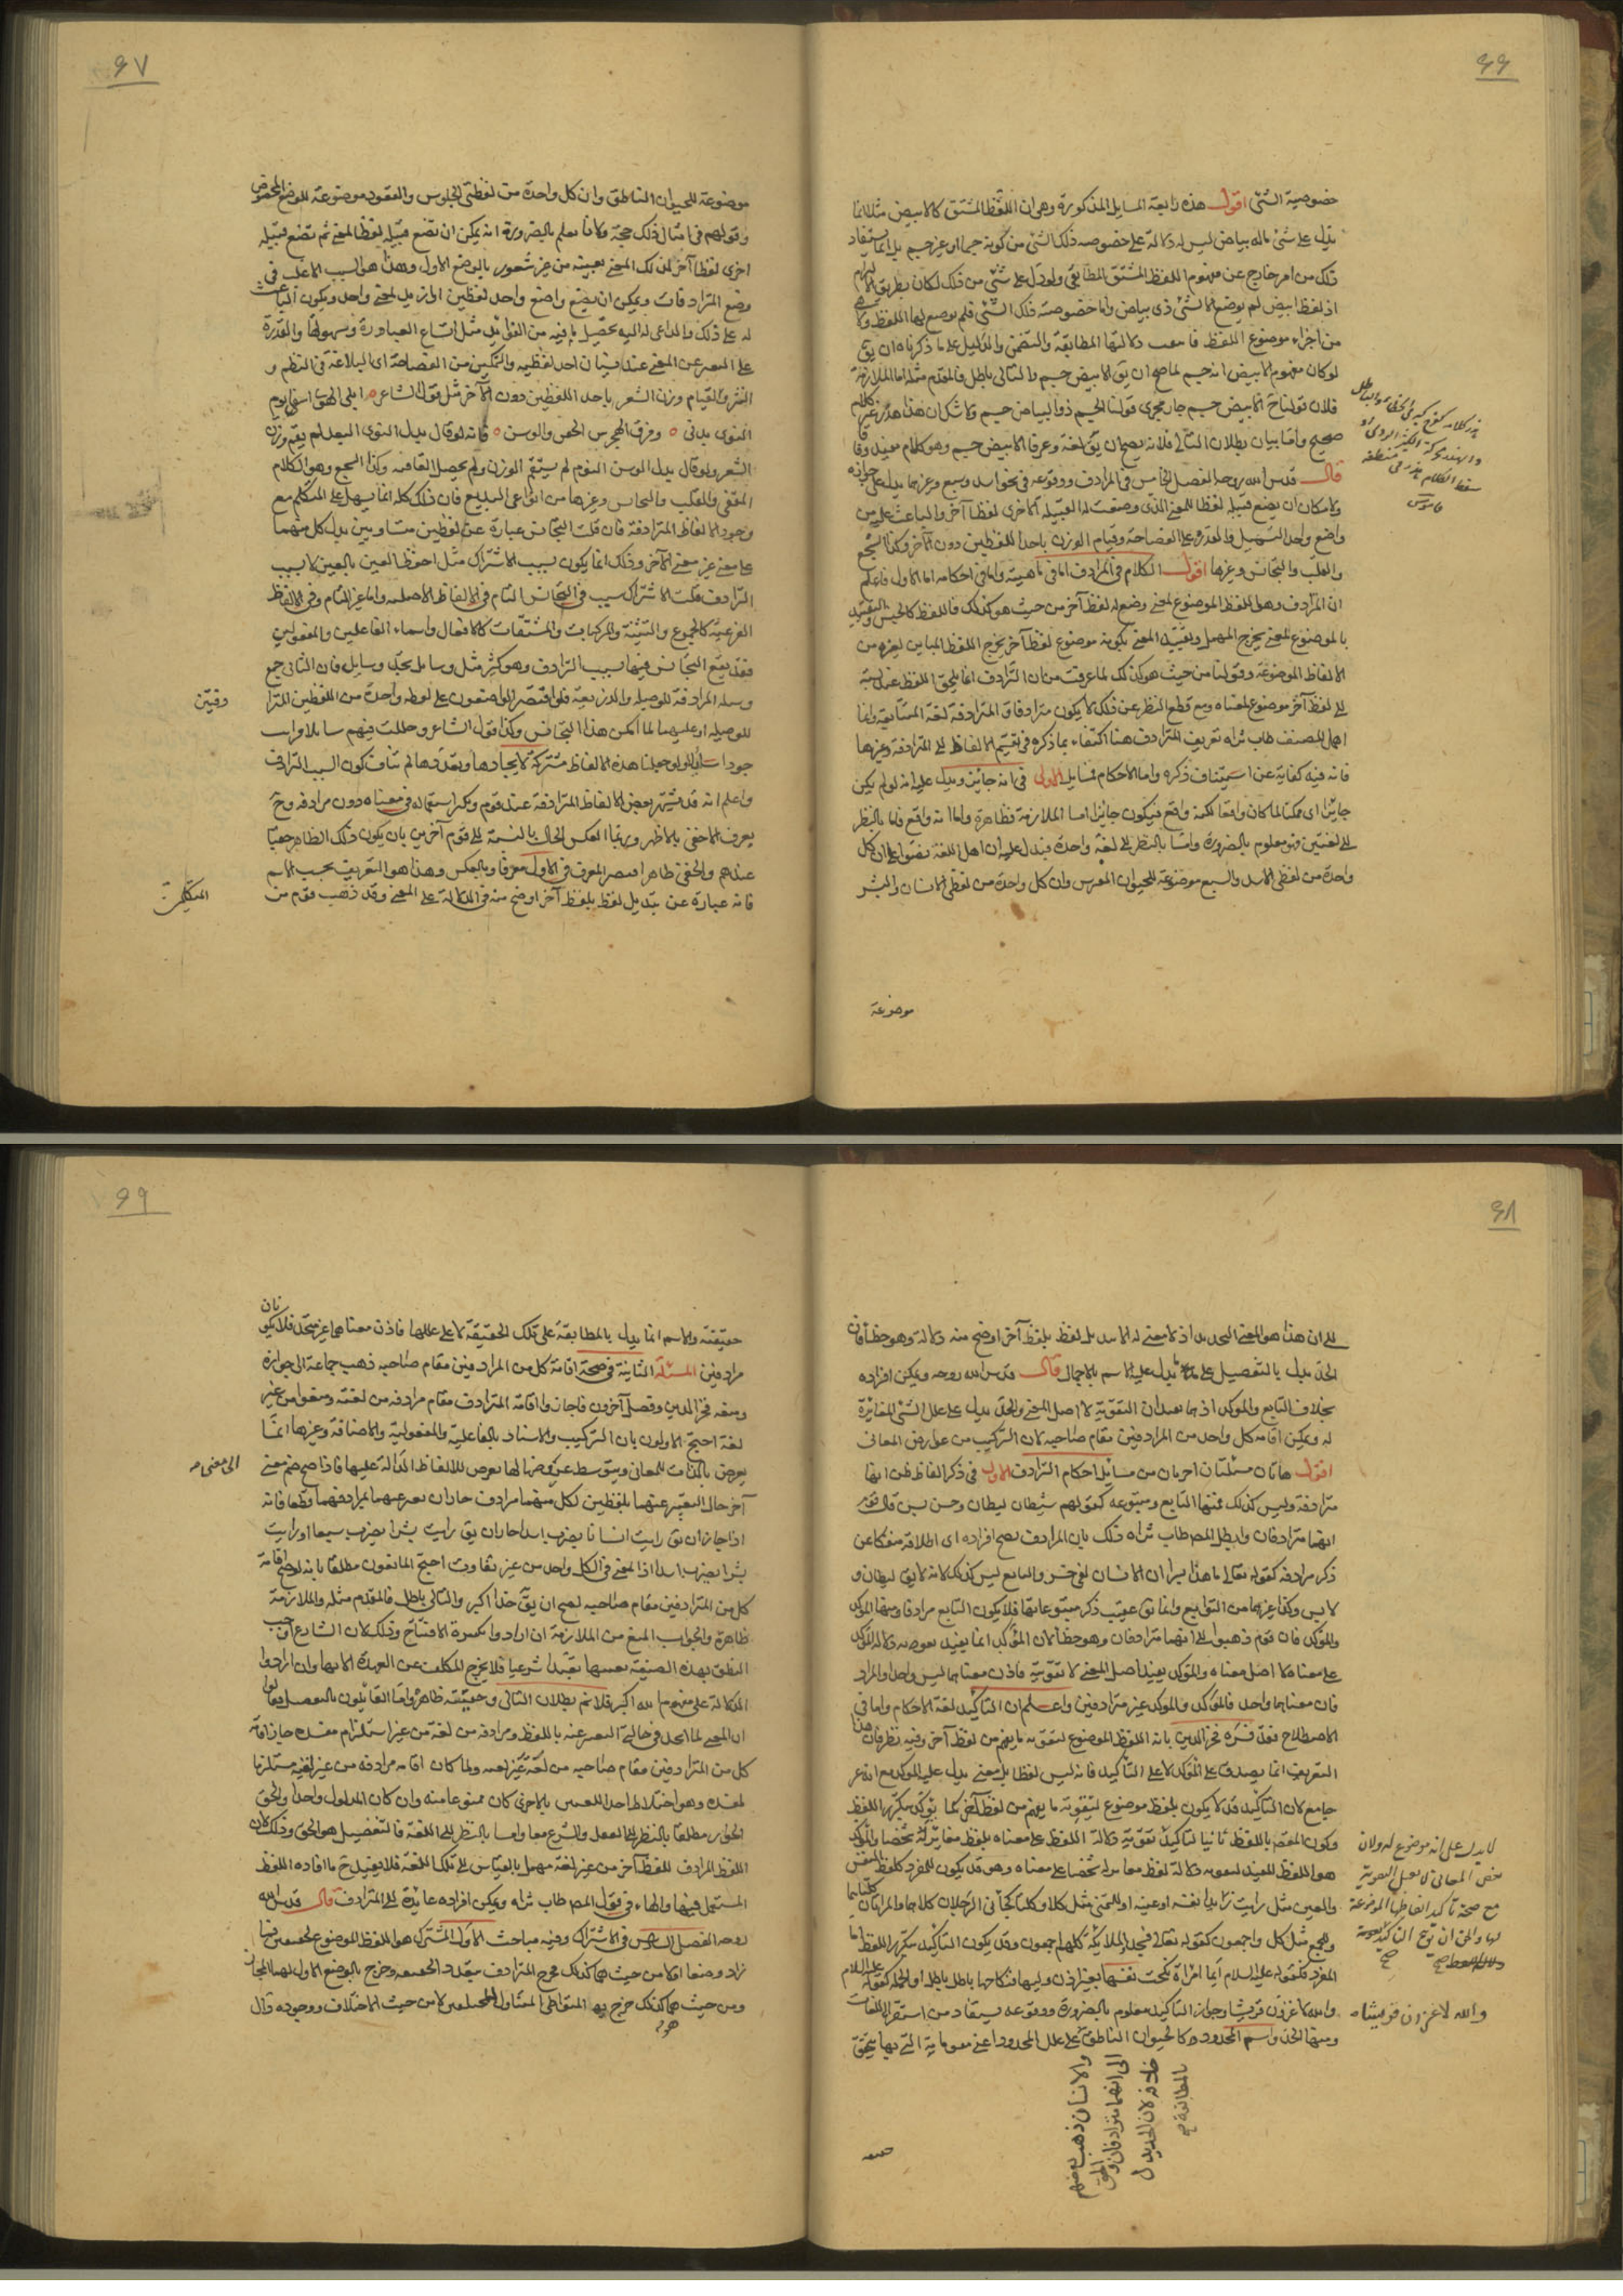 ٦٦
خصوصية الشئ اقول هذه رابعة المسايل المذكورة وهى ان اللفظ المشتق كالابيض مثلا انما
يدل على شئ ماله بياض ليس له دلالة على خصوصيه ذلك الشئ من كونه جسما او غير جسم بل انما يستفاد
ذلك من امر خارج عن مفهوم اللفظ المشتق المطابقى ولو دل على شئ من ذلك لكان بطريق الالتزام
اذ لفظ ابيض لم يوضع الا لشئ ذى بياض واما خصوصية ذلك الشئ فلم يوضع لها اللفظ ولا هى
من اجزاء موضوع اللفظ فانتفت دلالتها المطابقة والتضمن والدليل على ما ذكرناه ان يق
لو كان مفهوم الابيض انه جسم لما صح ان يق الابيض جسم والتالى باطل فالمقدم مثله اما الملازمة
فلان قولنا ح الابيض جسم جار مجرى قولنا الجسم ذو البياض جسم ولا شك ان هذا هذر غير كلام
صحيح واما بيان بطلان التالى فلانه يصح ان يق لغة وعرفا الابيض جسم وهو كلام مفيد وفاقا
قال قدس الله روحه الفصل الخامس فى الترادف ووقوعه فى نحو اسد وسبع وغيرهما يدل على جوازه
ولامكان ان يضع قبيلة لفظا للمعنى الذى وضعت له القبيلة الاخرى لفظا آخر والباعث عليه من
واضع واحد التسهيل والقدرة على الفصاحة وقيام الوزن باحد اللفظين دون الآخر وكذا السجع
والقلب والتجانس وغيرها اقول الكلام فى الترادف اما فى ماهيته واما فى احكامه اما الاول فاعلم
ان المرادف وهو اللفظ الموضوع لمعنى وضع له لفظ آخر من حيث هو كذلك فاللفظ كالجنس والتقييد
بالموضوع لمعنى يخرج المهمل وتقييد المعنى بكونه موضوع لفظ آخر يخرج اللفظ المباين لغيره من
الالفاظ الموضوعة وقولنا من حيث هو كذلك لما عرفت من ان الترادف انما يلحق اللفظ عند نسبته
الى لفظ آخر موضوع لمعناه ومع قطع النظر عن ذلك لا يكون مترادفا والمترادفة لغة المتتابعة وانما
اهمل المصنف طاب ثراه تعريف الترادف هنا اكتفاء بما ذكره فى تقسيم الالفاظ الى المترادفة وغيرها
فانه فيه كفاية عن استيناف ذكره واما الاحكام فمسايل الاولى فى انه جايز ويدل عليه انه لو لم يكن
جايزا اى ممكنا لما كان واقعا لكنه واقع فيكون جايزا اما الملازمة فظاهرة واما انه واقع فاما بالنظر
الى لغتين فهو معلوم بالضرورة واما بالنظر الى لغة واحدة فيدل عليه ان اهل اللغة نصوا على ان كل
واحدة من لفظى الاسد والسبع موضوعة للحيوان المفترس وان كل واحدة من لفظى الانسان والبشر
موضوعة
هذر كلامه كفرح كثر فى الخطا والباطل
والهذر محركة الكثير الردى او
سقط الكلام هذر فى منطقه
قاموس
٦٧
موضوعة للحيوان الناطق وان كل واحدة من لفظتى الجلوس والقعود موضوعة للوضع المخصوص
وقولهم فى امثال ذلك حجة ولانا نعلم بالضرورة انه يمكن ان تضع قبيلة لفظا لمعنى ثم تضع قبيلة
اخرى لفظا آخر لذلك المعنى بعينه من غير شعور بالوضع الاول وهذا هو السبب الاغلب فى
وضع المترادفات ويمكن ان يضع واضع واحد لفظين او ازيد لمعنى واحد ويكون الباعث
له على ذلك والداعى له اليه تحصيل ما فيه من الفوايد مثل اتساع العبارة وسهولتها والقدرة
على التعبير عن المعنى عند نسيان احد لفظيه والتمكين من الفصاحة اى البلاغة فى النظم و
النثر والقيام وزن الشعر باحد اللفظين دون الآخر مثل قول الشاعر ابلى الهوى اسفا يوم
النوى بدنى وفرق الهجر بين الجفن والوسن فانه لو قال بدل النوى البعد لم يقم وزن
الشعر ولو قال بدل الوسن النوم لم يستقم الوزن ولم يحصل القافية وكذا السجع وهو الكلام
المقفى والقلب والتجانس وغيرها من انواع البديع فان ذلك كله انما يسهل على المتكلم مع
وجود الالفاظ المترادفة فان قلت التجانس عبارة عن لفظين متساويين يدل كل منهما
على معنى غير معنى الآخر وذلك انما يكون بسبب الاشتراك مثل احفظ العين بالعين لا بسبب
الترادف قلت الاشتراك سبب فى التجانس التام فى الالفاظ الاصلية واما غير التام وفى الالفاظ
الفرعية كالجموع والتثنية والمركبات والمشتقات كالافعال واسماء الفاعلين والمفعولين
فقد يقع التجانس فيها بسبب الترادف وهو كثير مثل وسايل بحد وسايل فان الثانى جمع
وسيلة المرادفة للوصيلة والذريعة فلو اقتصر الواضعون على لفظة واحدة من اللفظين المترا
دفتين
للوصيلة او عليهما لما امكن هذا التجانس وكذا قول الشاعر وحللت فيهم سايلا وراىت
جودا سايلا ولو جعلنا هذه الالفاظ مشتركة لاتحادها وتعددها لم تناف كون السبب الترادف
واعلم انه قد يشتهر بعض الالفاظ المترادفة عند قوم ويكثر استعماله فى معناه دون مرادفه وح
يعرف الاخفى بالاظهر وربما انعكس الحال بالنسبة الى قوم آخرين بان يكون ذلك الظاهر خفيا
عندهم والخفى ظاهرا فيصير المعرف فى الاول معرفا وبالعكس وهذا هو التعريف بحسب الاسم
فانه عبارة عن تبديل لفظ بلفظ آخر اوضح منه فى الدلالة على المعنى وقد ذهب قوم من
المتكلمين
٦٨
الى ان هذا هو المعنى التحديد اذ لا معنى له الا تبديل لفظ بلفظ آخر اوضح منه دلالة وهو خطأ فان
الحد يدل بالتفصيل على ما يدل عليه الاسم بالاجمال قال قدس الله روحه ويمكن افراده
بخلاف التابع والموكد اذ هما يفيدان التقوية لا اصل المعنى والحد يدل على علل الشئ المغايرة
له ويمكن اقامة كل واحد من المرادفين مقام صاحبه لان التركيب من عوارض المعانى
اقول هاتان مسئلتان اخريان من مسايل احكام الترادف الاولى فى ذكر الفاظ ظن انها
مترادفة وليس كذلك فمنها التابع ومتبوعه كقولهم شيطان ليطان وحسن بسن
انهما مترادفان وابطله المصـ طاب ثراه ذلك بان المرادف يصح افراده اى اطلاقه منفكا عن
ذكر مرادفه كقوله تعالى ما هذا بشرا ان الانسان لفى خسر والتابع ليس كذلك لانه لا يق ليطان و
لا بسن وكذا غيرهما من التوابع وانما تق عقيب ذكر متبوعاتها فلا يكون التابع مرادفا ومنها الموكد
والموكد فان قوم ذهبوا الى انهما مترادفان وهو خطأ لان المؤكد انما يفيد تقوية دلالة الموكد
على معناه لا اصل معناه والمؤكد يفيد اصل المعنى لا تقويته فاذن معناهما ليس واحد والمراد
فان معناهما واحد فالمؤكد والموكد غير مترادفين واعلم ان التاكيد لغة الاحكام واما فى
الاصطلاح فقد فسره فخر الدين بانه اللفظ الموضوع لتقوية ما يفهم من لفظ آخر وفيه نظر فان هذا
التعريف انما يصدق على المؤكد لا على التاكيد فانه ليس لفظا بل معنى يدل عليه الموكد مع انه غير
جامع لان التاكيد قد لا يكون بلفظ موضوع لتقوية ما يفهم من لفظ آخر كما يؤكد بتكرير اللفظ
وكون المفهم باللفظ ثانيا لتاكيد تقوية دلالة اللفظ على معناه بلفظ مغاير له شخصا والمؤكد
هو اللفظ المفيد لتقوية دلالة لفظ مغاير له شخصا على معناه وهو قد يكون للمفرد كلفظ النفس
والعين مثل رايت زيدا نفسه او عينه او للمثنى مثل كلا وكلتا كجآنى الرجلان كلاهما والمراتان كلتاهما
وللجمع مثل كل واجمعون كقوله تعالى فسجد الملائكة كلهم اجمعون وقد يكون التاكيد بتكرير اللفظ اما
المفرد كقوله عليه السلام ايما امراة نكحت نفسها بغير اذن وليها فنكاحها باطل باطل او الجملة كقوله عليه السلام
والله لاغزون قريشا وجواز التاكيد معلوم بالضرورة ووقوعه يستفاد من استقراء اللغات
ومنها الحد واسم المحدود كالحيوان الناطق على علل المحدود اعنى مقوماته التى بها تتحقق
لا يدل على انه موضوع له ولان
بعض المعانى لا يقبل التقوية
مع صحة تاكيد الفاظها الموضوعة
لها والحق ان يق التاكيد تقوية
دلالة اللفظ صح
والله لاغزون قريشا
والانسان ذهب بعضهم
الى انهما مترادفان والحق
خلافه لان الحد يدل
بالمطابقة صح
حقيقته
٦٩
حقيقته والاسم انما يدل بالمطابقة على تلك الحقيقة لا على عللها فاذن معناهما غير متحد فلا يكونان
مرادفين المسئلة الثانية فى صحة اقامة كل من المرادفين مقام صاحبه ذهب جماعة الى جوازه
ومنعه فخر الدين وفصل آخرون فاجازوا اقامة المترادف مقام مرادفه من لغته ومنعوا من غير
لغة احتج الاولون بان التركيب والاسناد بالفاعلية والمفعولية والاضافة وغيرها انما
يعرض بالذات للمعانى وبتوسط عروضها لها يعرض للالفاظ الدالة عليها فاذا صح ضم معنى
الى معنى صح
آخر حال التعبير عنهما بلفظين لكل منهما مرادف جاز ان يعبر عنهما بمرادفهما وضعا فانه
اذا جاز ان يق رايت انسانا يضرب اسدا جاز ان يق رايت بشرا يضرب سبعا او رايت
بشرا يضرب اسدا اذ المعنى فى الكل واحد من غير تفاوت احتج المانعون مطلقا بانه لو صح اقامة
كل من المترادفين مقام صاحبه لصح ان يق خدا اكبر والتالى باطل فالمقدم مثله والملازمة
ظاهرة والجواب المنع من الملازمة ان ارادوا تكبيرة الافتتاح وذلك لان الشارع اوجب
النطق بهذه الصيغة بعينها تعبدا شرعيا فلا يخرج المكلف عن العهدة الا بها وان ارادوا
الدلالة على مفهوم الله اكبر فلا نم بطلان التالى وحقيقته ظاهرة واما القائلون بالتفصيل فقالوا
ان المعنى لما اتحد فى حالتى التعبير عنه باللفظ ومرادفه من لغة من غير استلزام مفسده جاز اقامة
كل من المترادفين مقام صاحبه من لغته غير لغته ولما كان اقامه مرادفه من غير لغته مستلزما
لمفسده وهو اختلاط احد اللغتين بالاخرى كان ممنوعا منه وان كان المدلول واحدا والحق
الجواز مطلقا بالنظر الى العقل والشرع معا واما بالنظر الى اللغة فالتفصيل هو الحق وذلك لان
اللفظ المرادف للفظ آخر من غير لغته مهمل بالقياس الى تلك اللغة فلا يفيد ح ما افاده اللفظ
المستعمل فيها والهاء فى قول المصـ طاب ثراه ويمكن افراده عائدة الى المترادف قال قدس الله
روحه الفصل السادس فى الاشتراك وفيه مباحث الاول المشترك هو اللفظ الموضوع لحقيقتين فما
زاد وضعا اولا من حيث هما كذلك فخرج المترادف بتعدد الحقيقة وخرج بالوضع الاول لهما المجاز
ومن حيث هما كذلك خرج به المتواطى المتناول للمختلفين لا من حيث الاختلاف ووجوده قال